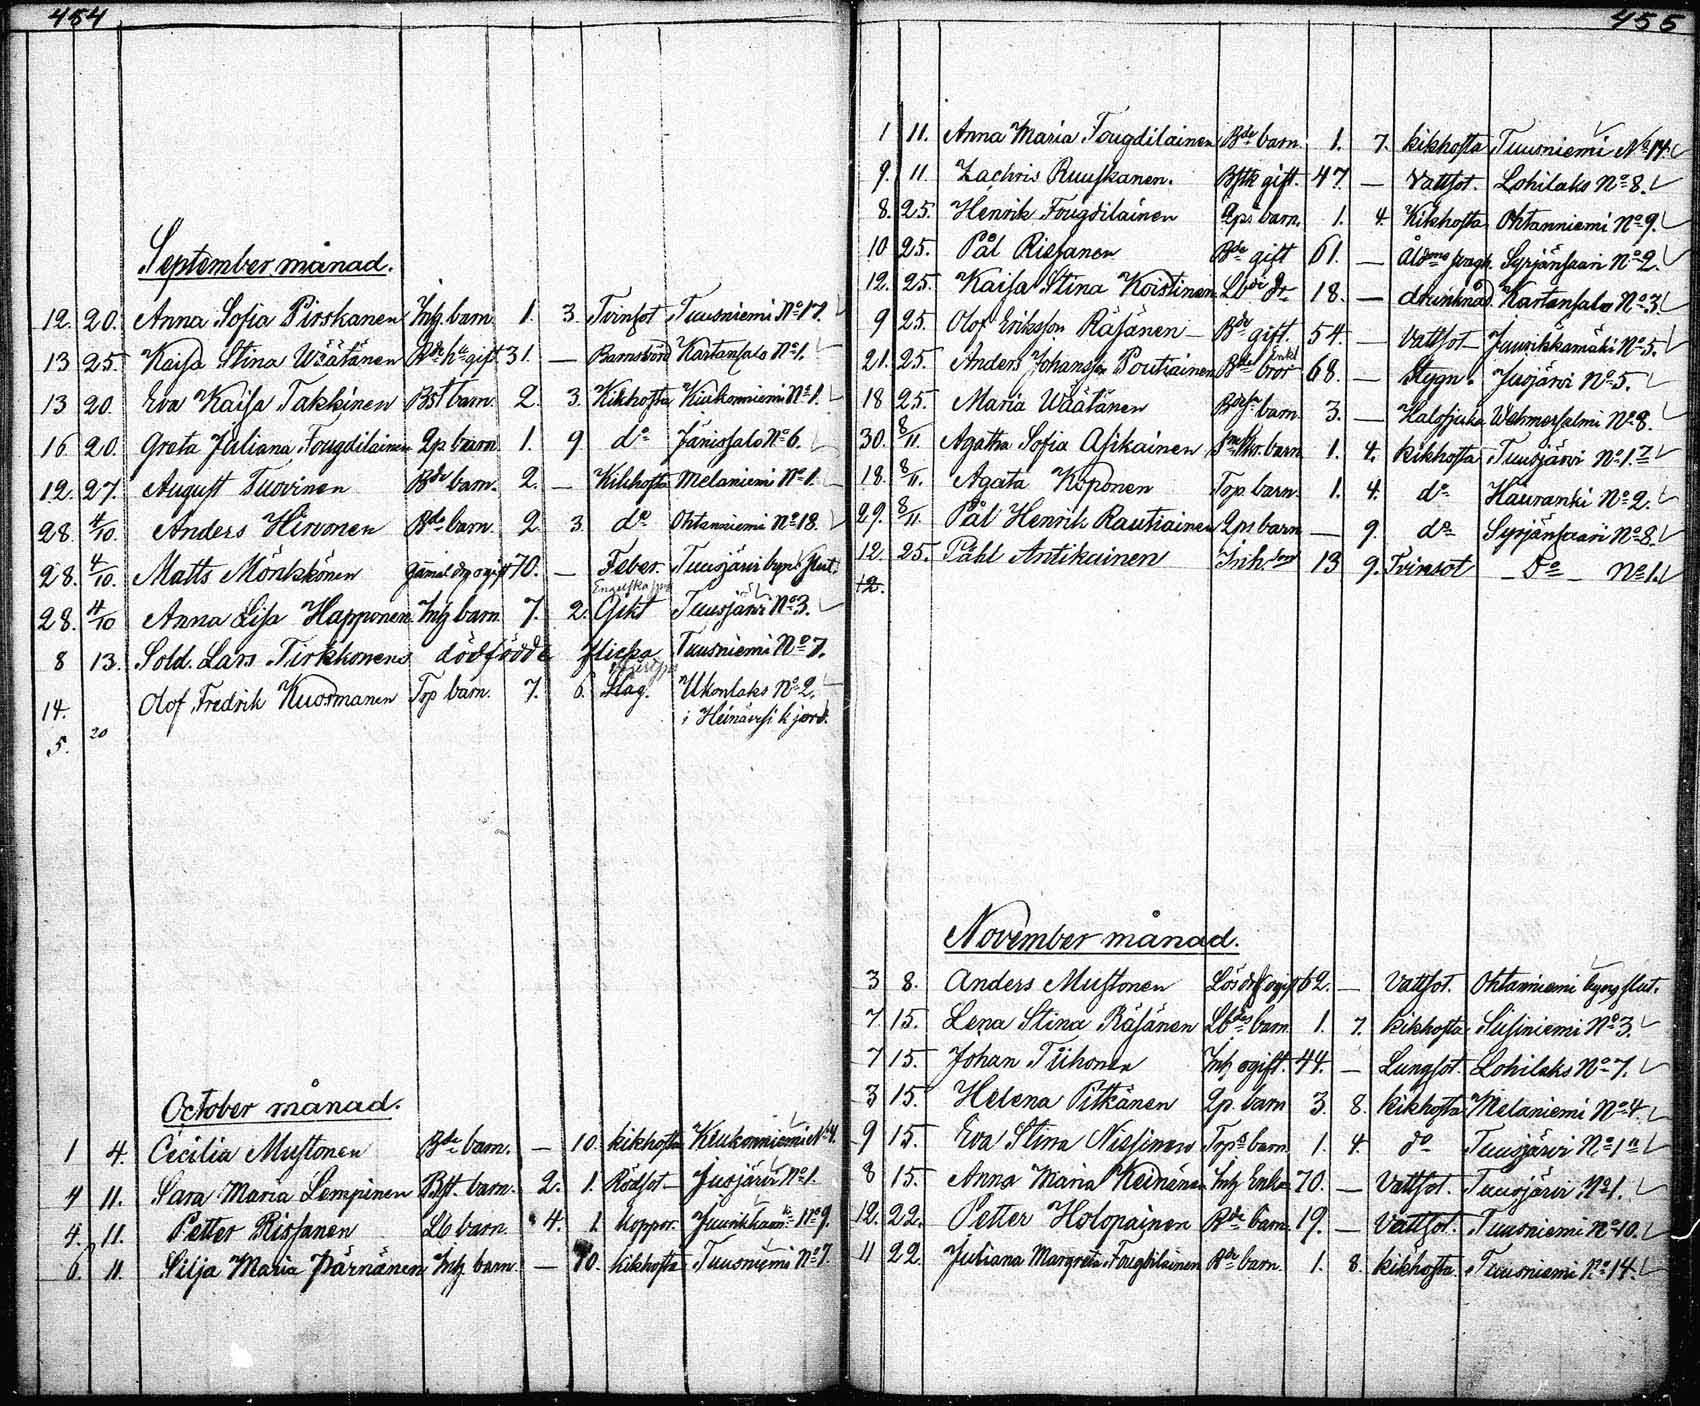 454
September månad.
12. 20. Anna Sofia Pirskanen Inh. barn. 1. 3. Tvinsot Tuusniemi No 17.
13 25. Kaisa Stina Wäätänen Bde hu gift 31. — Barnsbörd Kartansalo No 1.
13 20. Eva Kaisa Takkinen Bst barn. 2. 3. Kikhosta Kiukonniemi No 1.
16 20. Greta Juliana Fougdilainen Lp. barn 1. 9 do Jänissalo No 6.
12. 27. August Tuovinen Bde barn. 2. — Kikhosta Melaniemi No 1.
28. 4/10. Anders Hirvonen Bde barn. 2 3. do Ohtanniemi No 18.
28. 4/10. Matts Mönkkönen gamal dr ogift 70. — Feber. Tuusjärvi byns slut.
28. 4/10 Anna Lisa Happonen Inh barn 7. 2. Gikt Tuusjärvi No 3.
8 13. Sold. Lars Tirkkonens dödfödde flicka Tuusniemi No 7.
14. Olof Fredrik Kuosmanen Top barn. 7. 6. Slag. Ukonlaks No 2.
i Heinävesi k jord.
5. 20
October månad.
1 4. Cecilia Mustonen Bde barn. — 10. kikhosta Kiukonniemi No 4.
4 11. Sara Maria Lempinen Bst. barn. 2. 1. Rödsot — Juojärvi No 1.
4. 11. Petter Rissanen Lb barn. 4. 1. koppor. No 9.
6. 11. Silja Maria Pärnänen Inh barn. — 10. kikhosta Tuusniemi No 7.
455
1 11. Anna Maria Fougdilainen Bde barn. 1. 7. kikhosta Tuusniemi No 14.
9. 11. Zachris Ruuskanen. Bstk gift. 47 — Vattsot. Lohilaks No 8.
8. 25. Henrik Fougdilainen Lps barn. 1. 4. Kikhosta Ohtanniemi No 9.
10 25. Pål Rissanen Bde gift 61. — Åldoms Syrjänsaari No 2.
12. 25. Kaisa Stina Koistinen Lbdi dr 18. — drunknad. Kartansalo No 3.
9 25. Olof Eriksson Räsänen Bde gift. 54. — Vattsot Juurikkamäki No 5.
21. 25. Anders Johansson Poutiainen Bde bror Enkl 68. — Stygn. Juojärvi No 5.
18 25. Maria Wäätänen barn 3. — Halssjuka Wehmersalmi No 8.
30. 8/11. Agatha Sofia Asikainen barn 1. 4. kikhosta Tuusjärvi No 1.
18. 8/11. Agata Koponen Top. barn. 1. 4. do Hauranki No 2.
29. 8/11 Pål Henrik Rautiainen Lps barn — 9. do Syrjänsaari No 8.
12. 25. Påhl Antikainen Inh. son 13 9. Tvinsot — Do — No 1.
12.
November månad.
3 8. Anders Mustonen Lösdr ogift 62. — Vattsot. Ohtanniemi byns slut.
7. 15. Lena Stina Räsänen Lbdes barn 1. 7. kikhosta Susiniemi No 3.
7 15. Johan Tiihonen Inh ogift. 44. — Lungsot. Lohilaks No 7.
3 15. Helena Pitkänen Lp. barn 3. 8. kikhosta Melaniemi No 4.
9 15. Eva Stina Nissinen Tops barn 1. 4. do Tuusjärvi No 1
8 15. Anna Maria Keinänen Inh Enka 70. — Vattsot. Tuusjärvi No 1.
12. 22. Petter Holopainen Bde barn. 19. — Vattsot. Tuusniemi No 10.
11 22. Juliana Margreta Fougdilainen Bde barn. 1. 8. kikhosta Tuusniemi No 14.